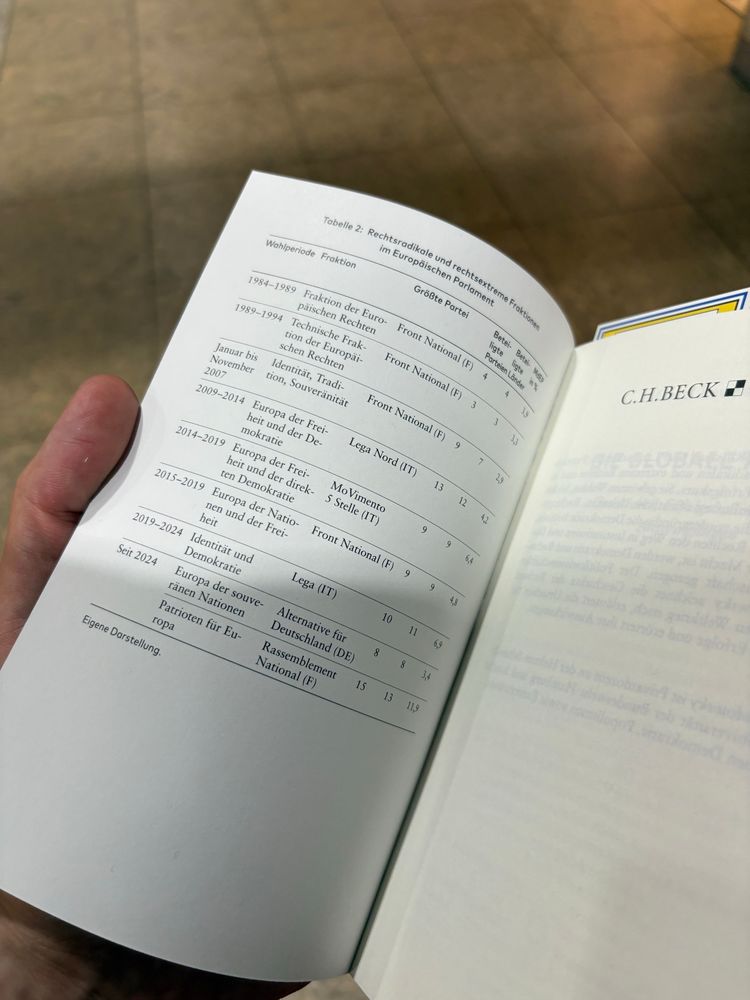 Tabelle 2: Rechtsradikale und rechtsextreme Fraktionen
im Europäischen Parlament
Wahlperiode Fraktion Größte Partei Betei-ligte Parteien Betei-ligte Länder MdEP in %
1984–1989 Fraktion der Euro- Front National (F) 4 4 3,9
päischen Rechten
1989–1994 Technische Frak- Front National (F) 3 3 3,3
tion der Europäi-
schen Rechten
Januar bis Identität, Tradi- Front National (F) 9 7 2,9
November tion, Souveränität
2007
2009–2014 Europa der Frei- Lega Nord (IT) 13 12 4,2
heit und der De-
mokratie
2014–2019 Europa der Frei- MoVimento 9 9 6,4
heit und der direk- 5 Stelle (IT)
ten Demokratie
2015–2019 Europa der Natio- Front National (F) 9 9 4,8
nen und der Frei-
heit
2019–2024 Identität und Lega (IT) 10 11 6,9
Demokratie
Seit 2024 Europa der souve- Alternative für 8 8 3,4
ränen Nationen Deutschland (DE)
Patrioten für Eu- Rassemblement 15 13 11,9
ropa National (F)
Eigene Darstellung.
C.H.BECK